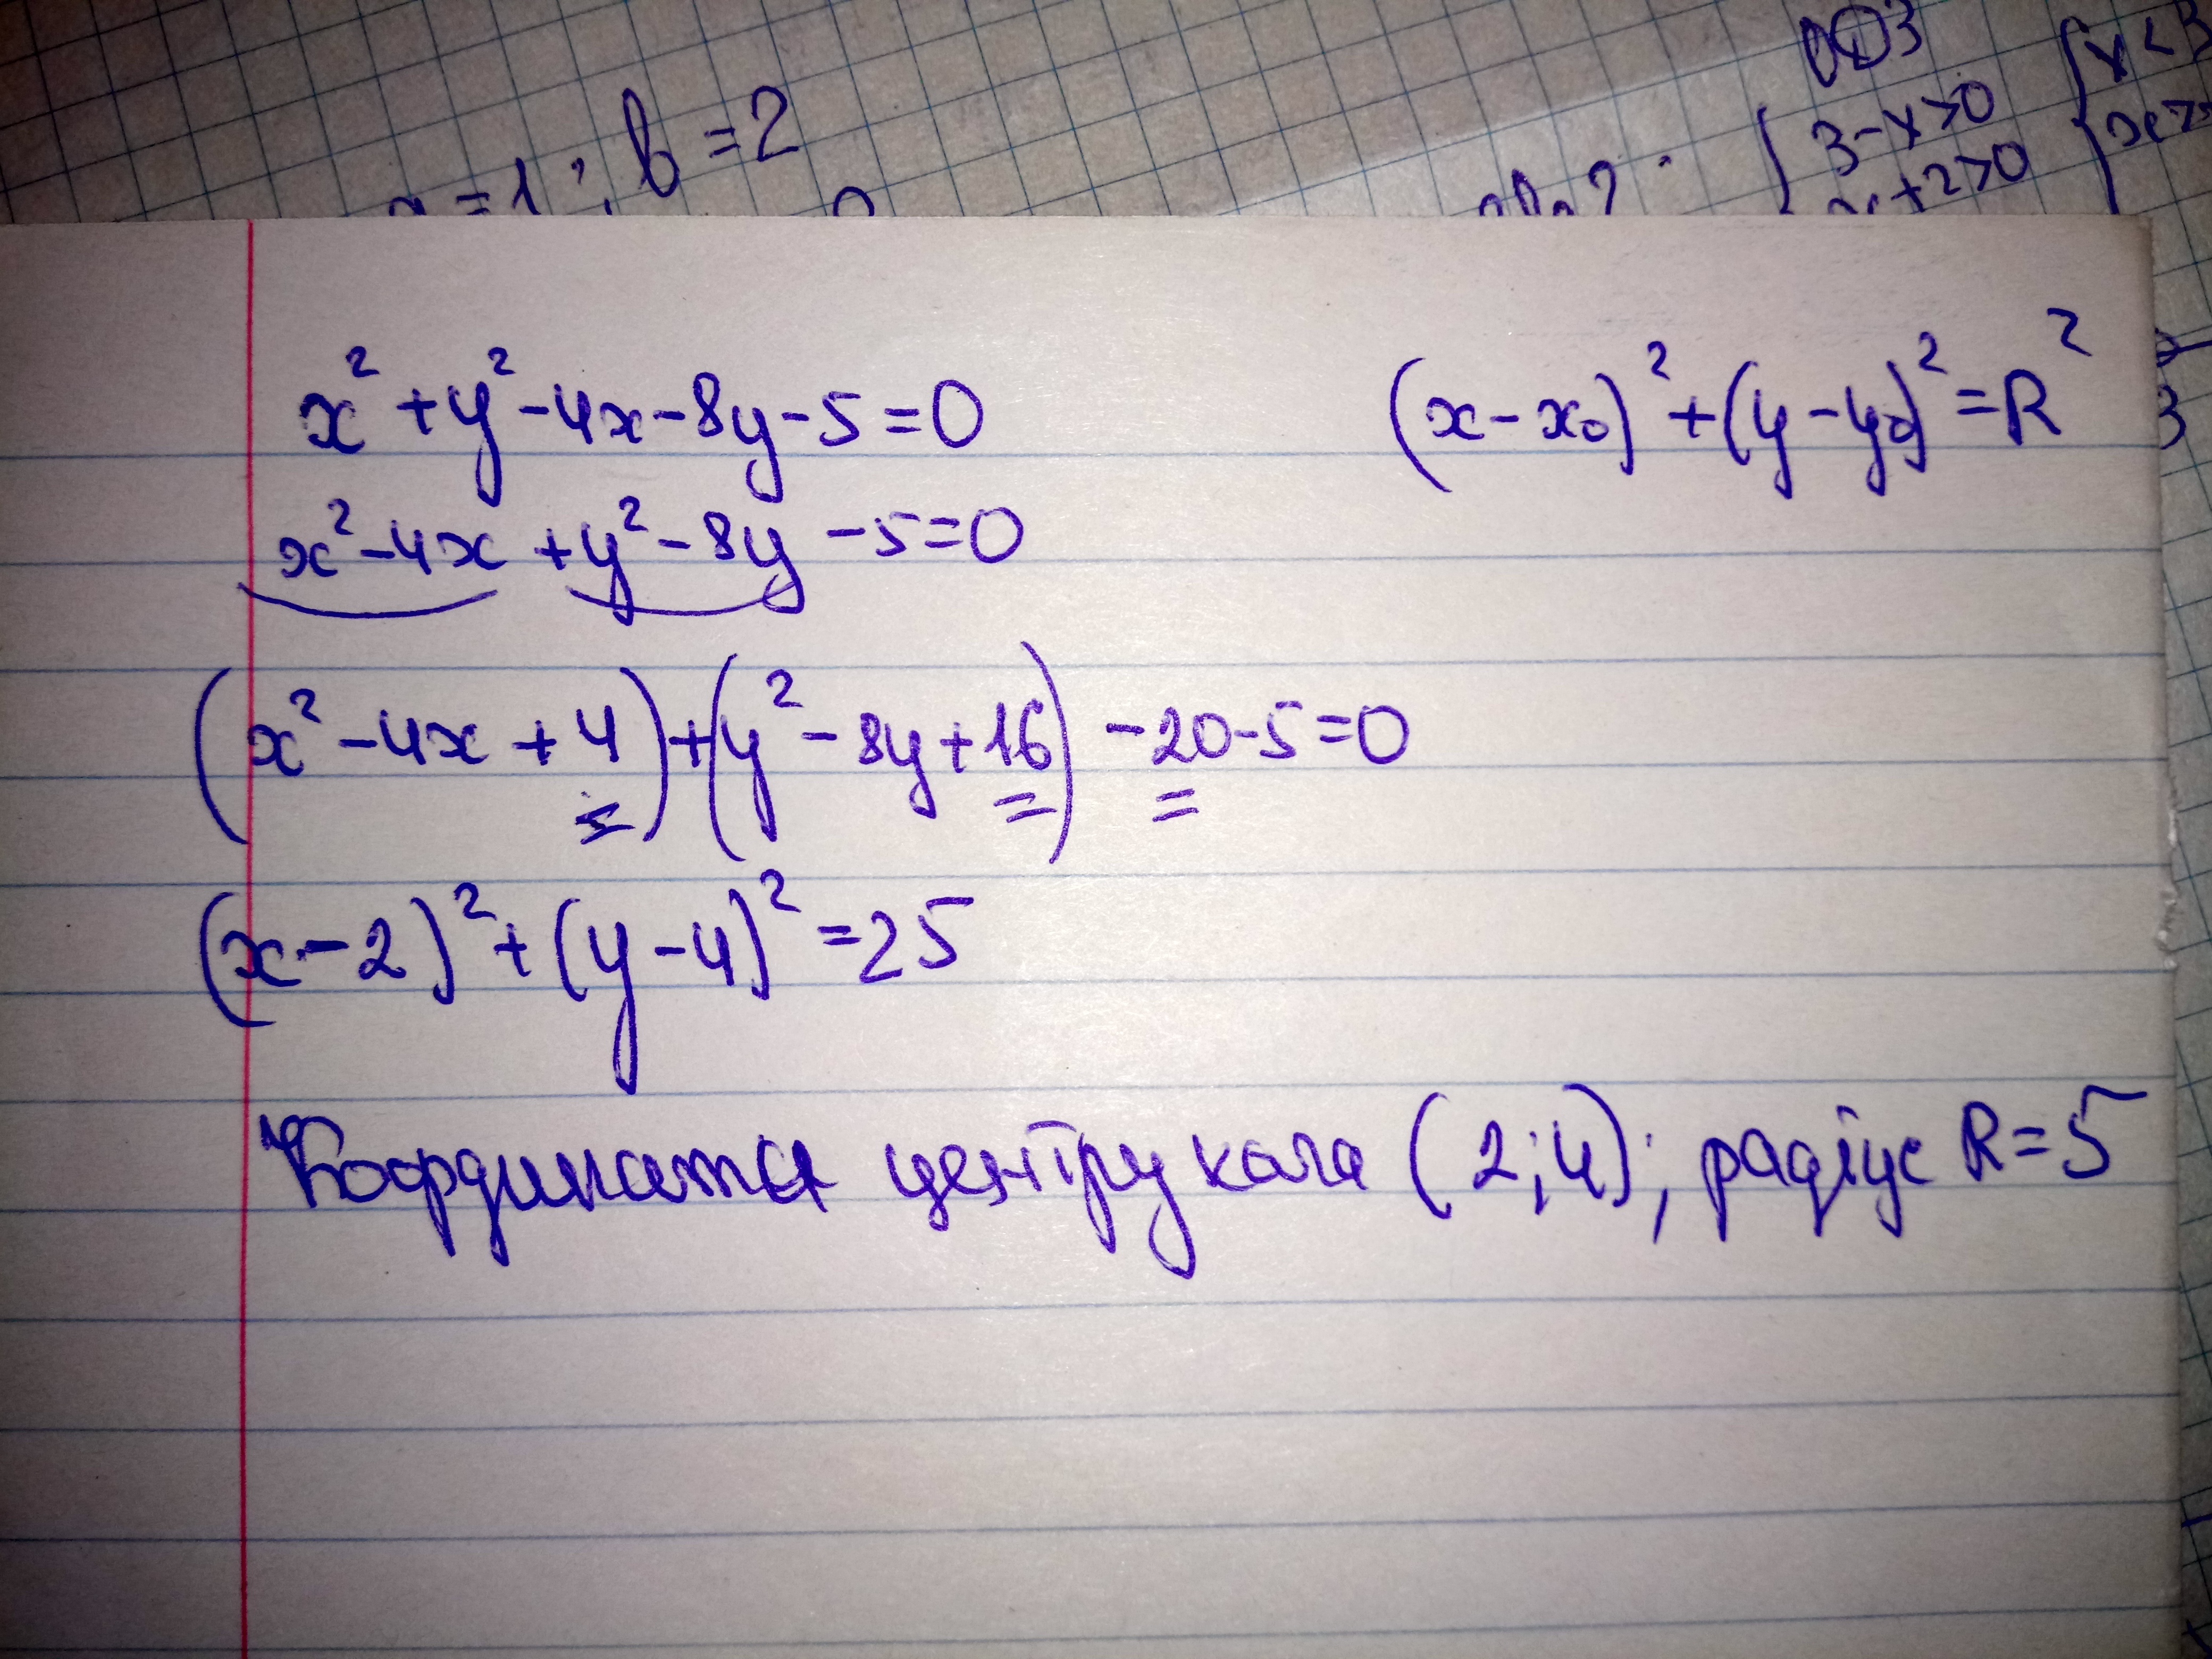 в = 2
3-x>0
x² + y² - 4x - 8y - 5 = 0
(x - x₀)² + (y - y₀)² = R²
x² - 4x + y² - 8y - 5 = 0
(x² - 4x + 4) + (y² - 8y + 16) - 20 - 5 = 0
(x - 2)² + (y - 4)² = 25
Координата центру кола (2;4); радіус R = 5